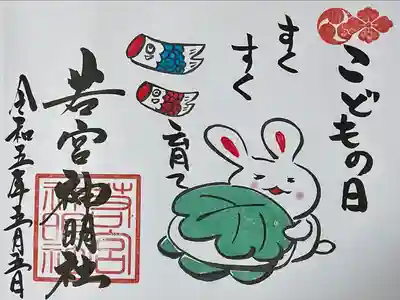 こどもの日
すく
すく
育て
若宮神明社
令和五年五月五日